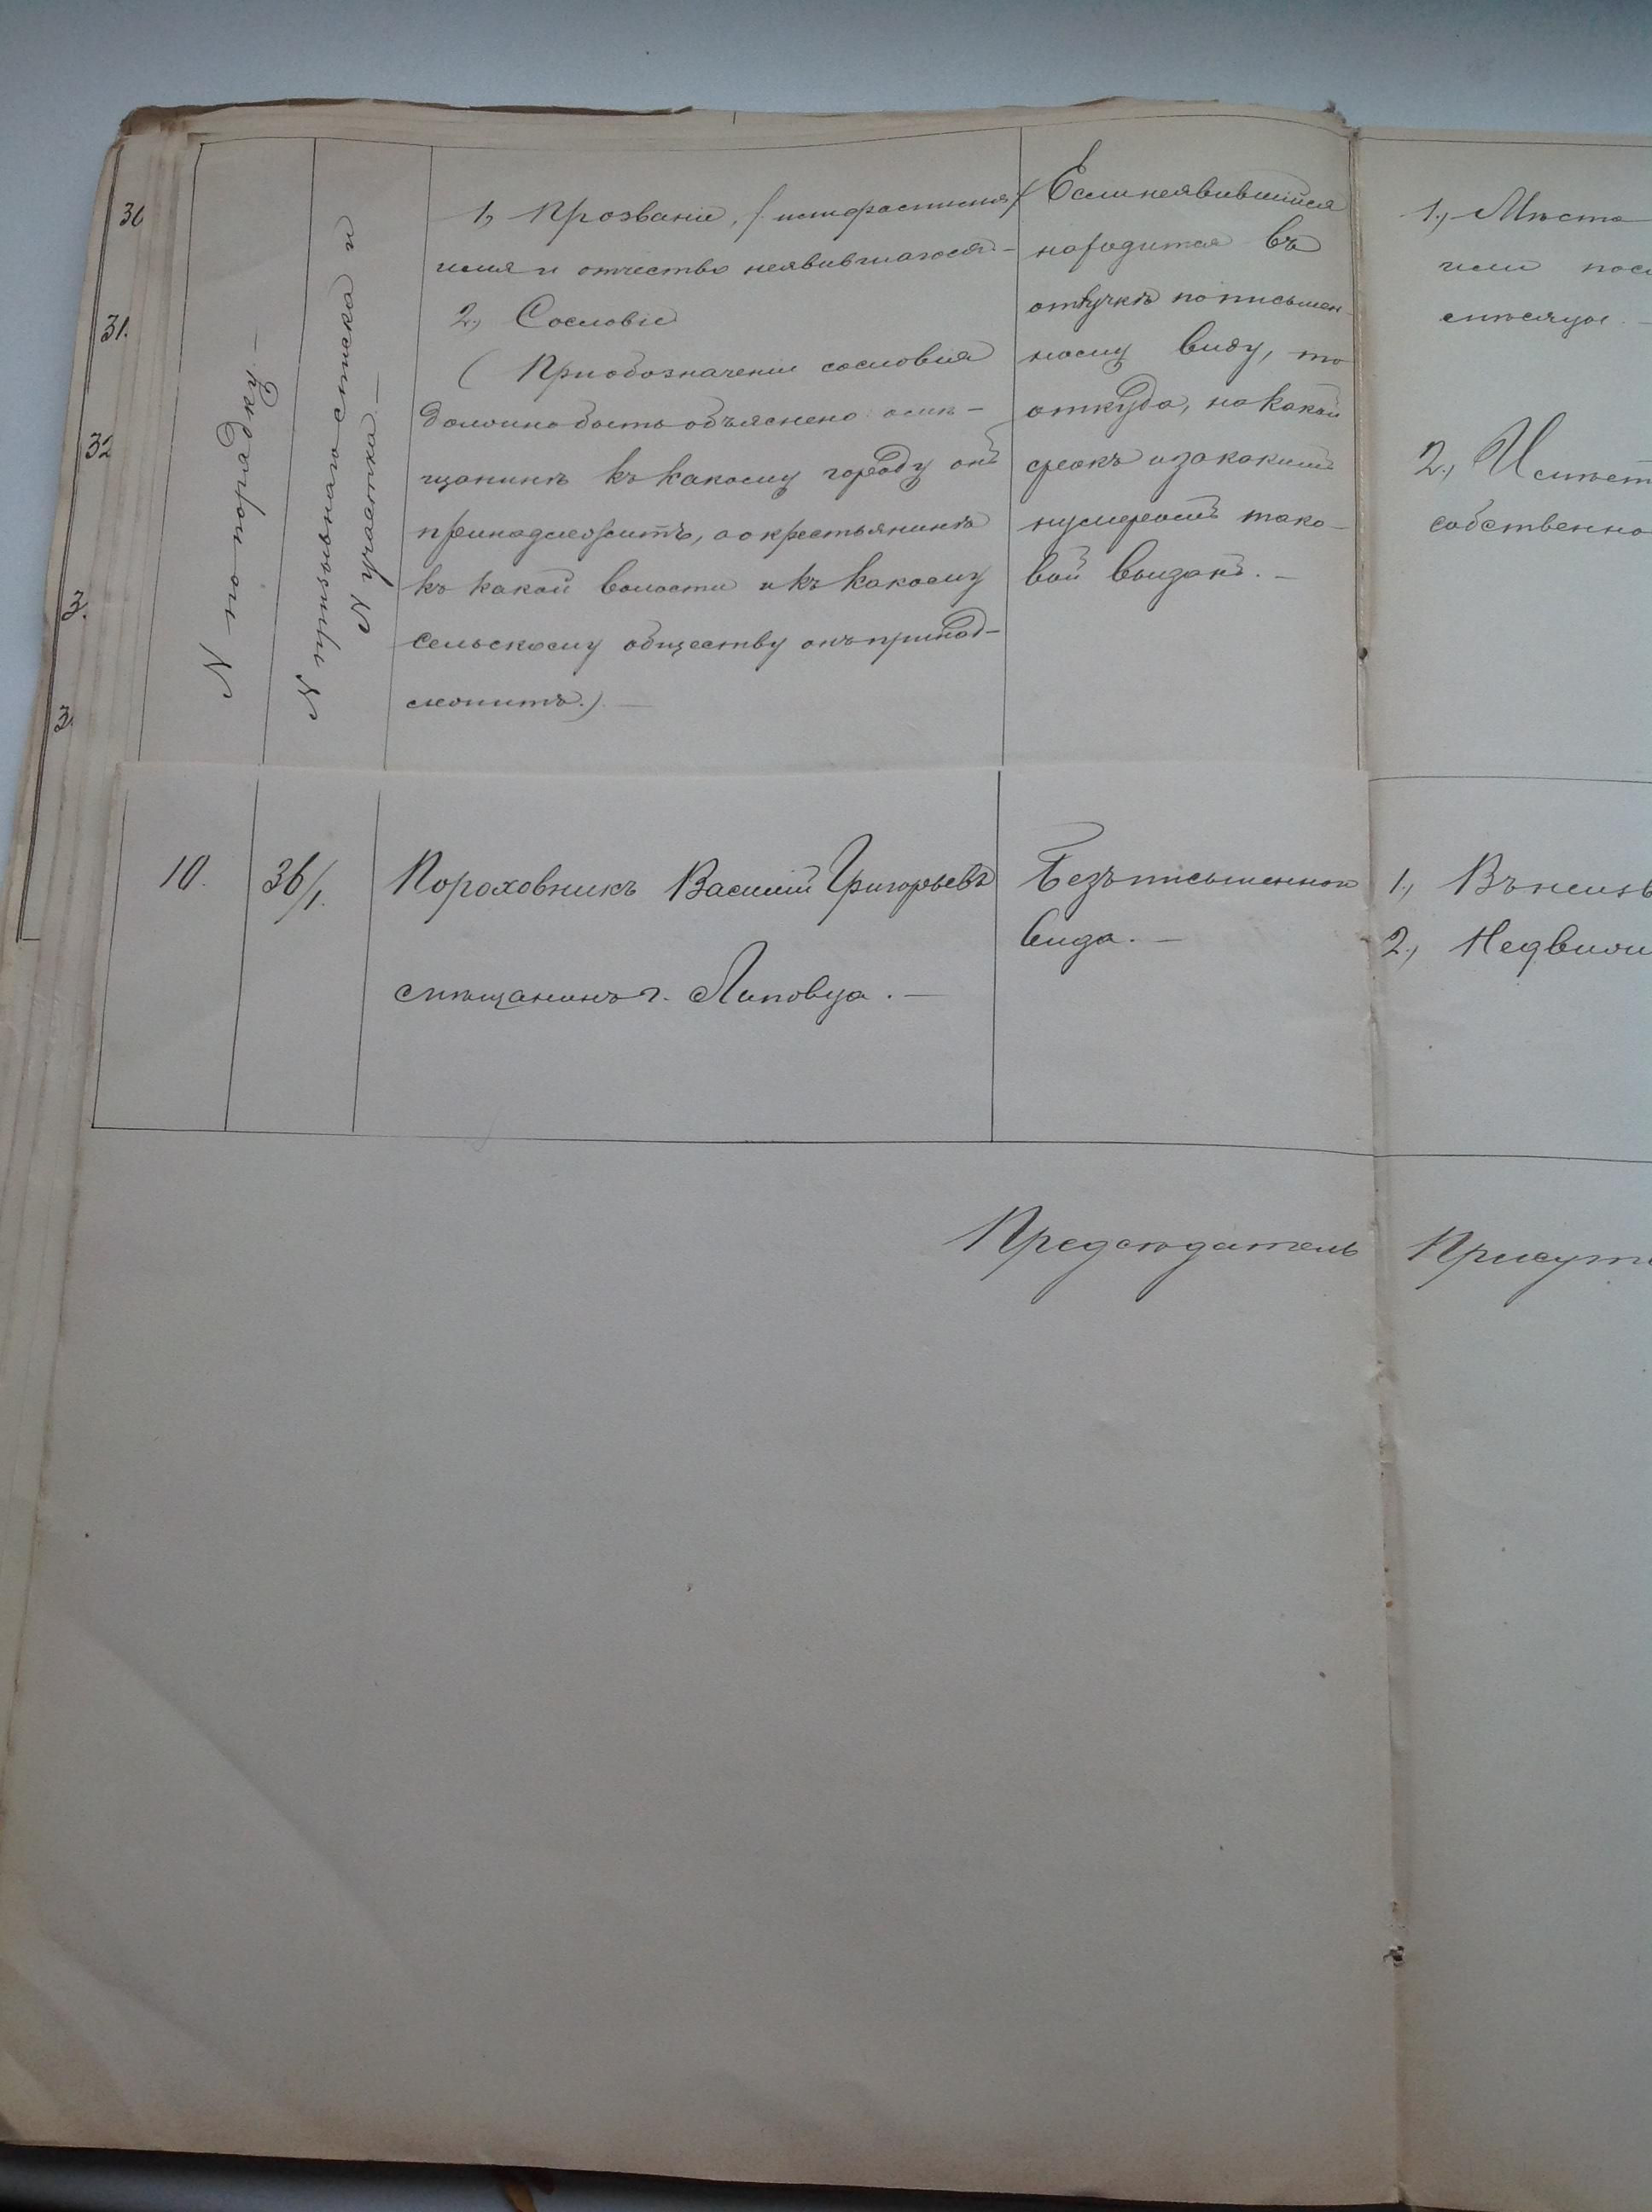 30
31.
32
3.
3.
N по порядку. —
N призывнаго списка и
N участка. —
1, Прозваніе, /или фамилія/
имя и отчество неявившагося —
2, Сословіе
( При обозначеніи сословія
должно быть объяснено: о мѣ-
щанинѣ къ какому городу онъ
принадлежитъ, а о крестьянинѣ
къ какой волости и къ какому
сельскому обществу онъ принад-
лежитъ.). —
Если неявившійся
находится въ
отлучкѣ по письмен-
ному виду, то
откуда, на какой
срокъ и за какимъ
нумеромъ тако-
вой выданъ. —
1., Мѣсто
или пос
2., Имѣет
собственно
10.
36/1.
Пороховникъ Василій Григорьевъ
мѣщанинъ г. Липовца. —
Безъ письменнаго
вида. —
1., Въ неизв
2., Недвижи
Предсѣдатель Присутс